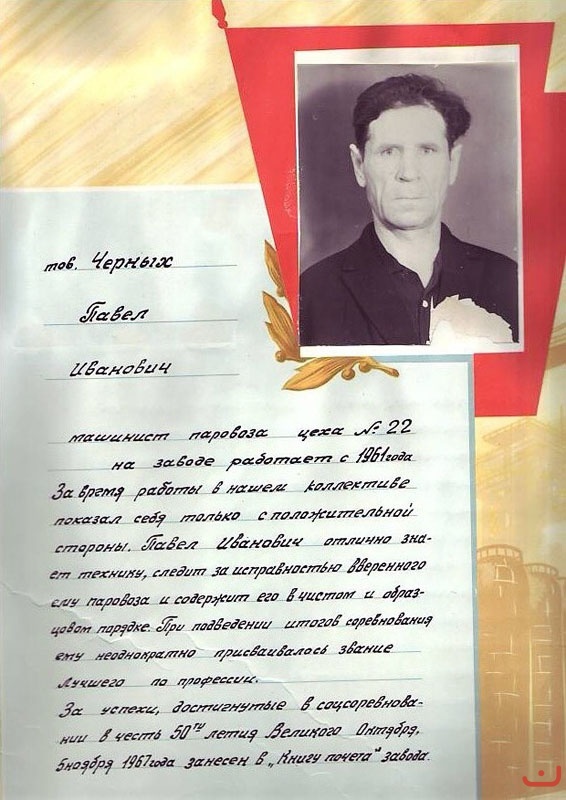 тов. Черных
Павел
Иванович
машинист паровоза цеха № 22
на заводе работает с 1961 года
За время работы в нашем коллективе
показал себя только с положительной
стороны. Павел Иванович отлично зна-
ет технику, следит за исправностью вверенного
ему паровоза и содержит его в чистом и образ-
цовом порядке. При подведении итогов соревнования
ему неоднократно присваивалось звание
Лучшего по профессии.
За успехи, достигнутые в соцсоревнова-
нии в честь 50ти летия Великого Октября,
5 ноября 1967 года занесен в „Книгу почета" завода.